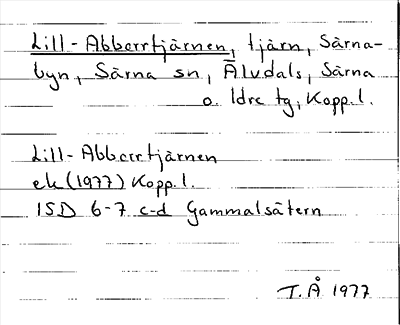 Lill-Abborrtjärnen, tjärn, Särna-
byn, Särna sn., Älvdals, Särna
o. Idre tg, Kopp.l.
Lill-Abborrtjärnen
ek (1977) Kopp.l.
ISD 6-7 c-d Gammalsätern
T.Å 1977